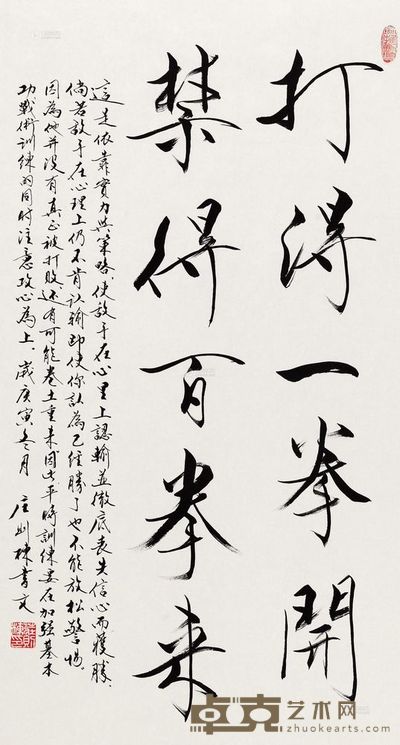 打得一拳開
禁得百拳来
這是依靠實力與策略使敌手在心里上認輸並徹底丧失信心而獲勝、
倘若敌手在心理上仍不肯认輸即使你認為已經勝了也不能放松警惕、
因為他并没有真正被打敗还有可能卷土重来因此平時訓練要在加强基本
功戰術訓練的同时注意攻心為上、歲庚寅冬月 庄则棟書文
卓克艺术网
www.zhuokearts.com